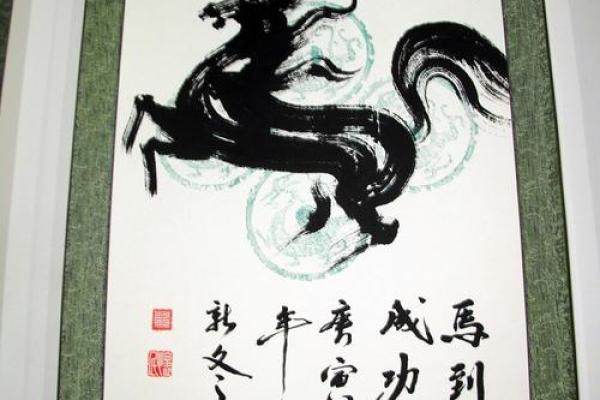 馬到
成功
庚寅
年
新文